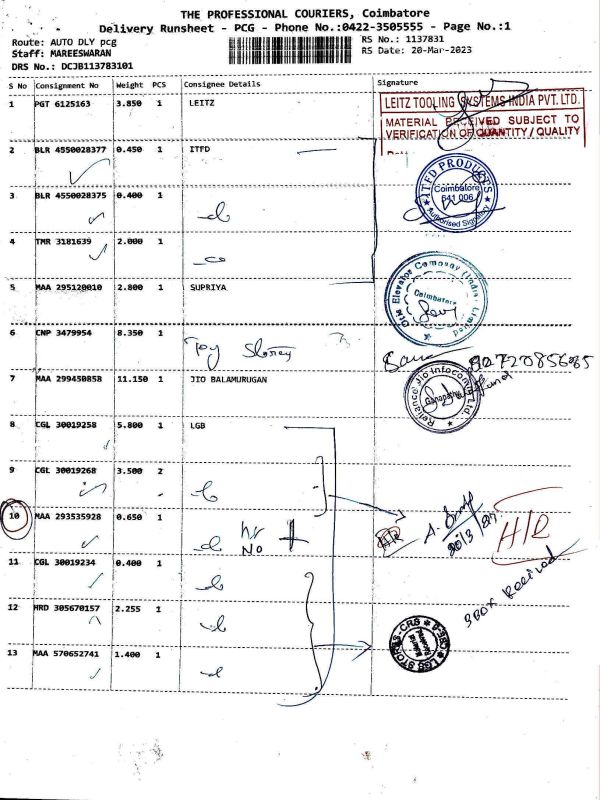 THE PROFESSIONAL COURIERS, Coimbatore
Delivery Runsheet - PCG - Phone No.:0422-3505555 - Page No.:1
Route: AUTO DLY pcg
RS No.: 1137831
Staff: MAREESWARAN
RS Date: 20-Mar-2023
DRS No.: DCJB113783101
S No Consignment No Weight PCS Consignee Details Signature
1 PGT 6125163 3.850 1 LEITZ
LEITZ TOOLING SYSTEMS INDIA PVT. LTD.
MATERIAL RECEIVED SUBJECT TO
VERIFICATION OF QUANTITY / QUALITY
2 BLR 4550028377 0.450 1 ITFD
ITFD PRODUCTS
Coimbatore
641 006
Authorised Signatory
3 BLR 4550028375 0.400 1
4 TMR 3181639 2.000 1
5 MAA 295120010 2.800 1 SUPRIYA
Otis Elevator Company (India) Limited
Coimbatore
6 CNP 3479954 8.350 1 Toy Storey
9072085685
7 MAA 299450858 11.150 1 JIO BALAMURUGAN
Reliance Jio Infocomm Ltd.
Ganapathy
8 CGL 30019258 5.800 1 LGB
9 CGL 30019268 3.500 2
10 MAA 293535928 0.650 1 hr
No
H/R
H/R
11 CGL 30019234 0.400 1
3Box Received
12 HRD 305670157 2.255 1
LGB STORES-CRS
Material
Received
13 MAA 570652741 1.400 1